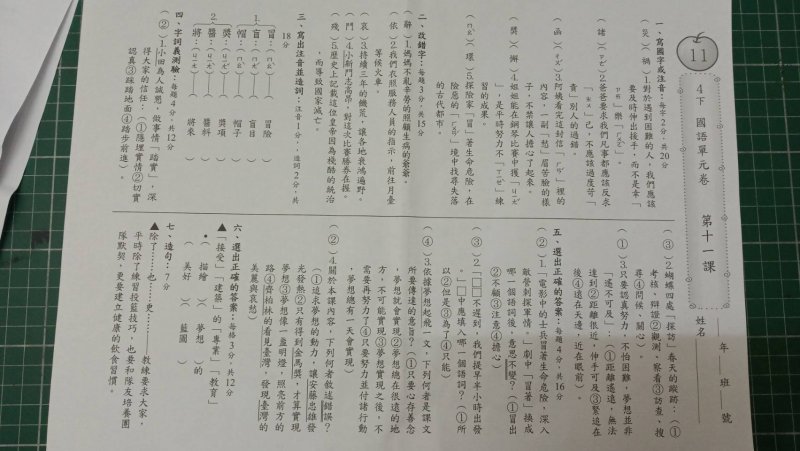 11
4下 國語單元卷 第十一課
年 班 號
姓名
一、寫國字或注音：每字2分，共20分
(災)(禍)1.對於遇到困難的人，我們應該
要及時伸出援手，而不是幸「
」樂「
(諸)2.爸爸要求我們凡事都應該反求
「」己，不應該過度苛「
責」別人的過錯
(函)3.阿姨看完這封信「」裡的
內容，一副「愁」眉苦臉的樣
子，不禁讓人擔心了起來。
(獎)(懈)4.姐姐能在鋼琴比賽中獲「
」，是平時努力不「」練
習的成果。
(環)5.探險家「冒」著生命危險，在
險惡的「」境中找尋失落
的古代都市。
二、改錯字：每題3分，共15分
(辭)1.媽媽不亂辛勞的照顧生病的爺爺。
(依)2.我們衣照服務人員的指示，前往月臺
等候火車。
(哀)3.持續三年的饑荒，讓各地衰鴻遍野。
(鬥)4.小新門志高昂，對這次比賽勝券在握。
(殘)5.歷史上記載這位皇帝因為棧酷的統治
，而導致國家滅亡。
三、寫出注音並造詞：注音1分、造詞2分，共
18分
1.
冒：(ㄇㄠˋ) 冒險
盲：(ㄇㄤˊ) 盲目
帽：(ㄇㄠˋ) 帽子
2.
獎：(ㄐㄧㄤˇ) 獎項
醬：(ㄐㄧㄤˋ) 醬料
將：(ㄐㄧㄤ) 將來
四、字詞義測驗：每題4分，共12分
(②)1.小田為人誠懇，做事情「踏實」，深
得大家的信任。(①應埋實情②切實
認真③踩踏地面④踏步前進)。
(③)2.蝴蝶四處「探訪」春天的蹤跡：(①
考核、辯證②觀測、察看③訪查、搜
尋④問候、關心)。
(①)3.只要認真努力，不怕困難，夢想並非
「遙不可及」。(①距離遙遠，無法
達到②距離很近，伸手可及③緊追在
後④遠在天邊，近在眼前)。
五、選出正確的答案：每題4分，共16分
(②)1.「電影中的士兵冒著生命危險，深入
敵營刺探軍情。」劇中「冒著」換成
哪一個語詞後，意思不變？(①冒出
②不顧③注意④擔心)
(③)2.「□□不遲到，我們提早半小時出發
。」□中應填入哪一個語詞？(①所
以②但是③為了④只能)
(④)3.依據夢想起飛一文，下列何者是課文
所要傳達的意旨？(①只要心存善念
，夢想就會實現②夢想總在很遠的地
方，不可能實現③夢想實現之後，不
需要再努力了④只要努力並付諸行動
，夢想總有一天會實現)
(②)4.關於本課內容，下列何者敘述錯誤？
(①追求夢想的動力，讓安藤忠雄發
光發熱②只有得到金馬獎，才算實現
夢想③夢想像一盞明燈，照亮前方的
路④齊柏林的看見臺灣，發現臺灣的
美麗與哀愁)
六、選出正確的答案：每格3分，共12分
▲「接受」「建築」的「專業」「教育」
●(描繪)(夢想)的
(美好)(藍圖)
七、造句：7分
▲除了……也……更…… 教練要求大家，
平時除了練習投籃技巧，也要和隊友培養團
隊默契，更要建立健康的飲食習慣。